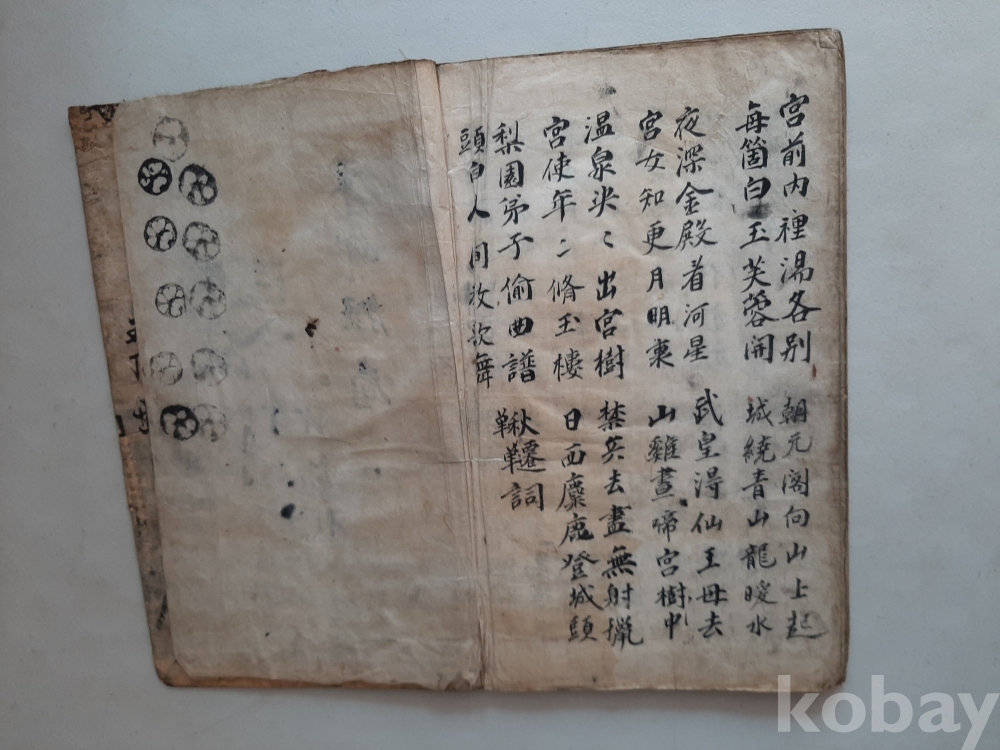 宮前內裡湯各別
每箇白玉芙蓉開
朝元阁向山上起
城繞青山龍暖水
夜深金殿看河星
宮女知更月明裏
武皇淂仙王母去
山雞晝啼宮樹中
温泉决〻出宮樹
宮使年〻脩玉樓
禁兵去盡無射獵
日西麋鹿登城頭
梨園弟子偷曲譜
頭白人间教歌舞
鞦韆詞
kobay